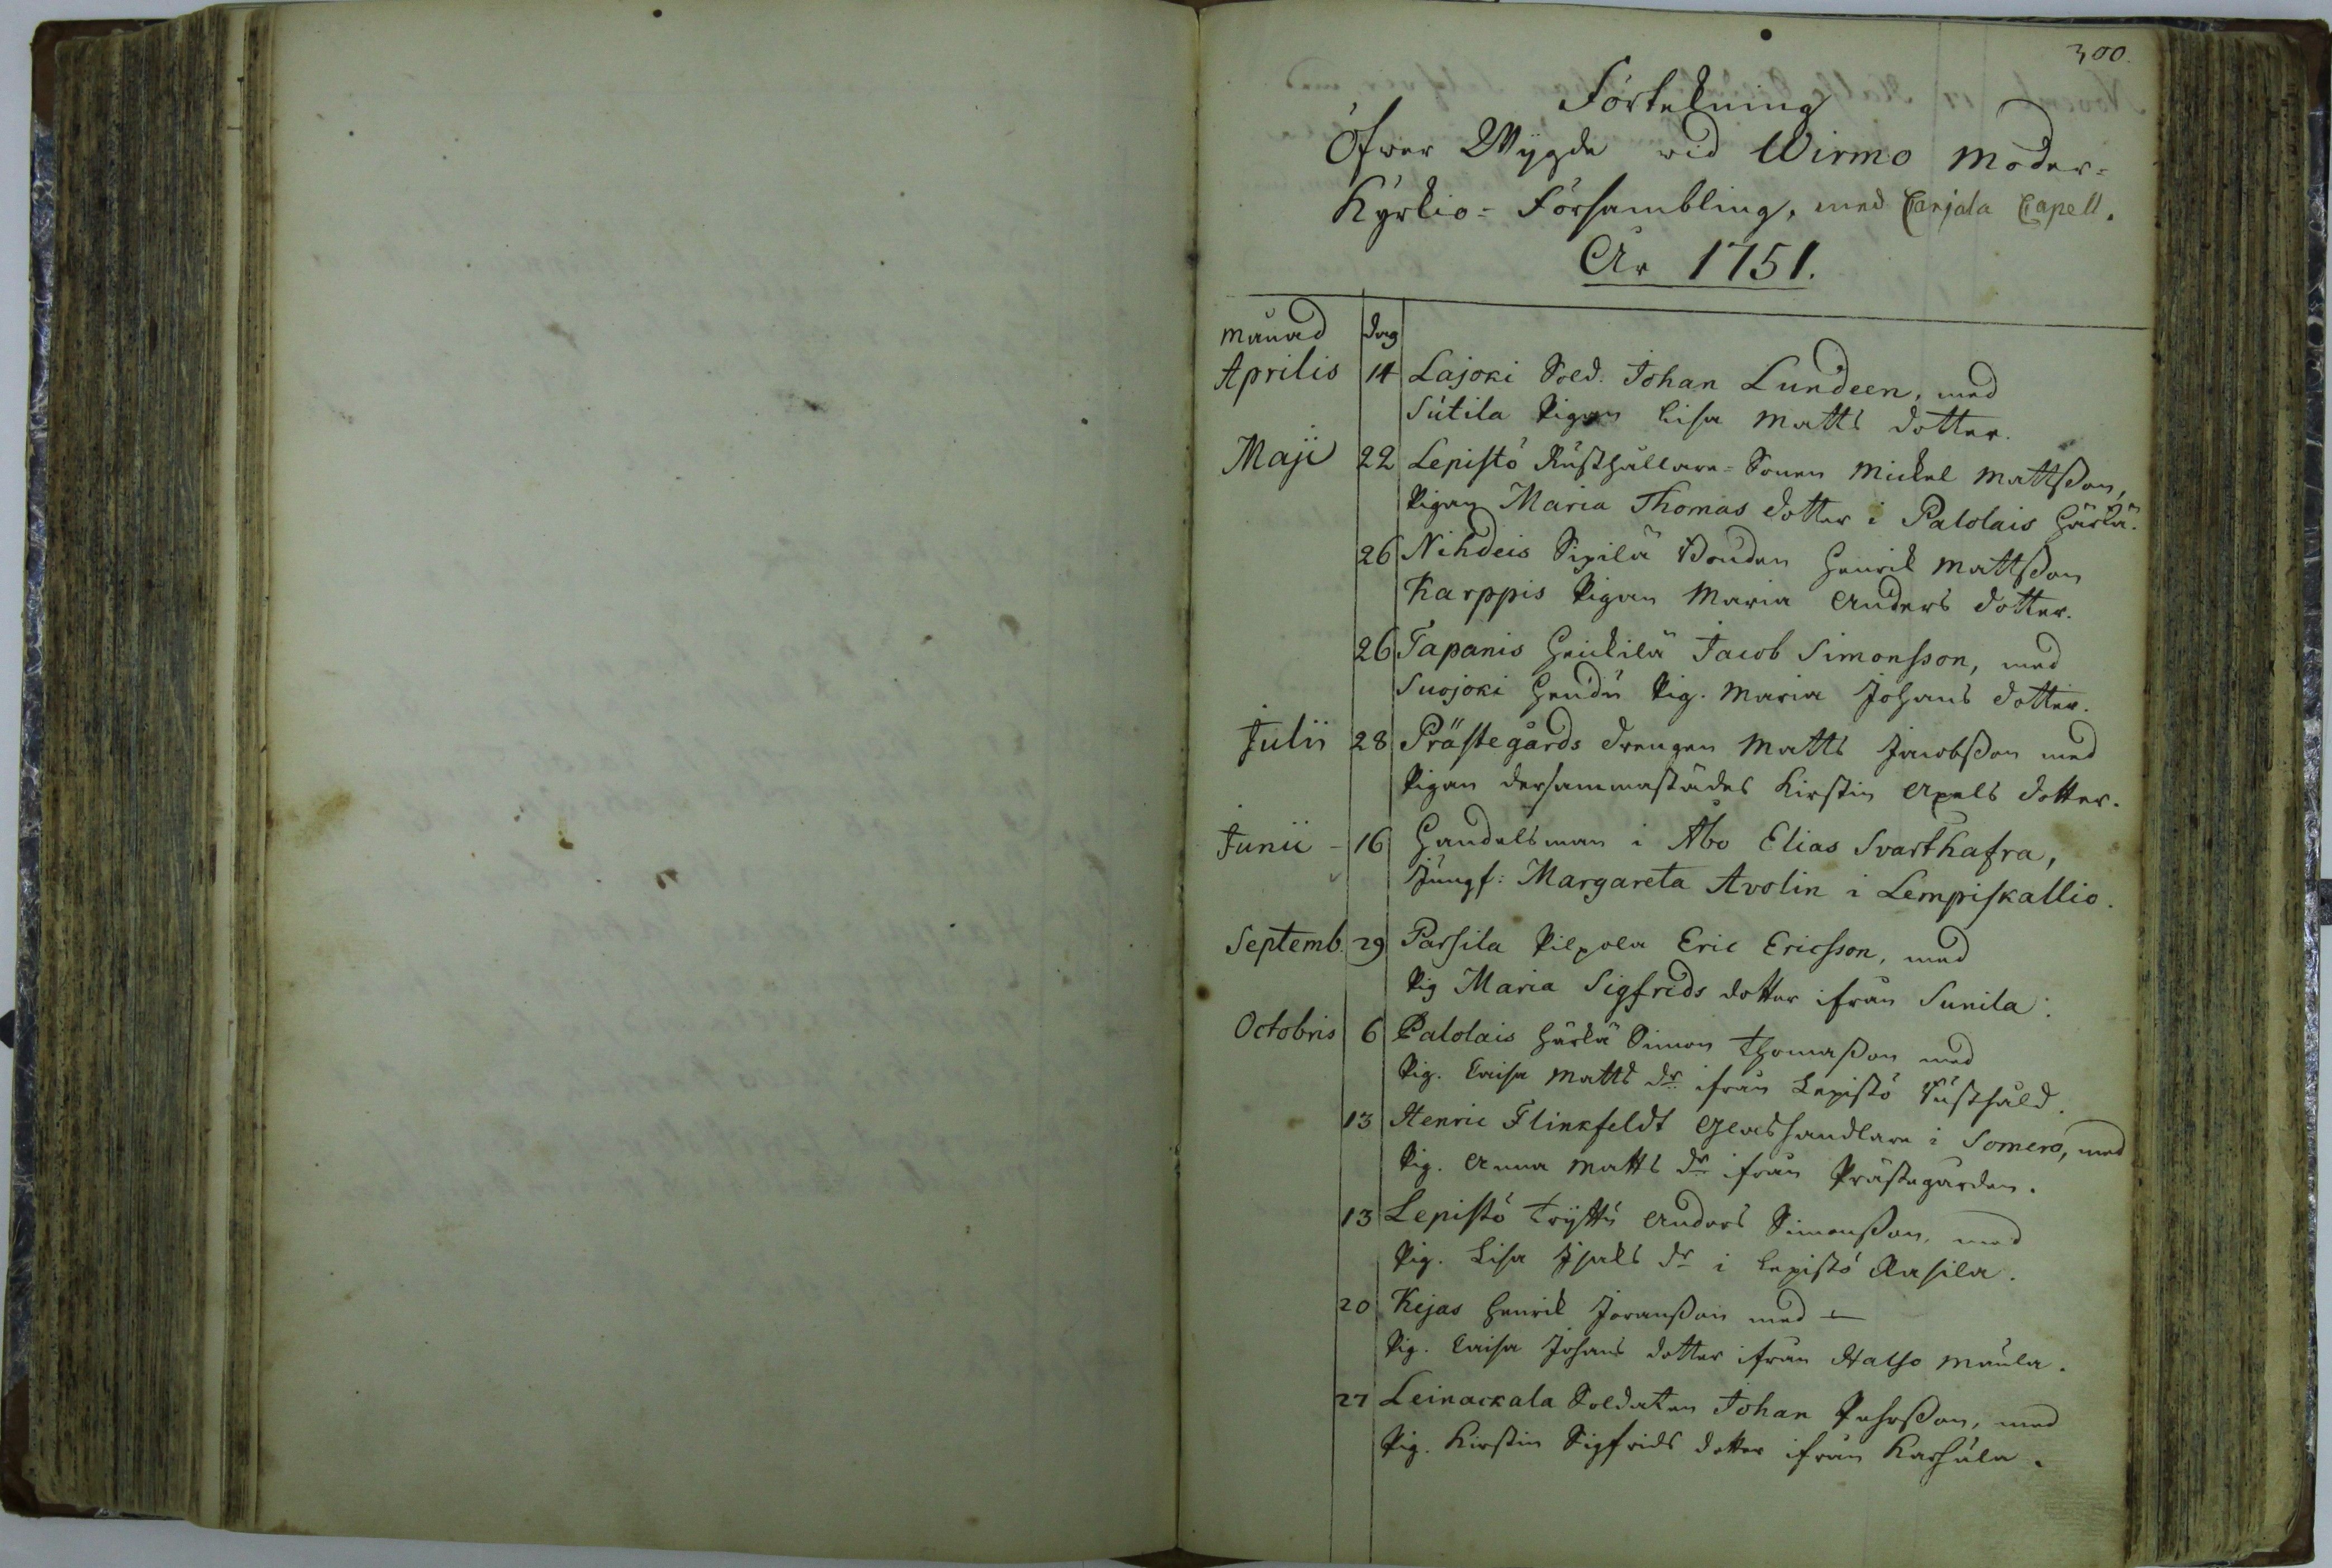 300.
Förtekning
Öfwer Wygde wid Wirmo Moder-
Kyrkio-Försambling, med Carjala Capell.
År 1751.
månad dag
Aprilis 14 Lajoki Sold. Johan Lundeen, med
Sutila Pigan Lisa Matts dotter.
Maji 22 Lepistö Rusthållare-Sonen Mickel Mattsson,
Pigan Maria Thomas dotter i Palolais Härkä.
26 Nihdeis Sipilä Bonden Henrik Mattsson
Karppis Pigan Maria Anders dotter.
26 Tapanis Heickilä Jacob Simonsson, med
Suojoki Pig. Maria Johans dotter.
Julii 28 Prästegårds drengen Matts Jacobsson med
Pigan dersammastädes Kirstin Axels dotter.
Junii - 16 Handelsman i Åbo Elias Svarthafra,
Jungf: Margareta Avolin i Lempiskallio.
Septemb. 29 Parsila Pilpola Eric Ericsson, med
Pig Maria Sigfrids dotter ifrån Sunila.
Octobris 6 Palolais Härkä Simon Thomasson med
Pig. Caisa Matts dr ifrån Lepistö Rusthåld.
13 Henric Flinkfeldt Glashandlare i Somero, med
Pig. Anna Matts dr ifrån Prästegården.
13 Lepistö Tryttü Anders Simonsson, med
Pig. Lisa Isaks dr i Lepistö Rasila.
20 Kejas Henrik Joransson med —
Pig. Caisa Johans dotter ifrån Halso Maula.
27 Leinackala Soldaten Johan Pehrsson, med
Pig. Kirstin Sigfrids dotter ifrån Karhula.